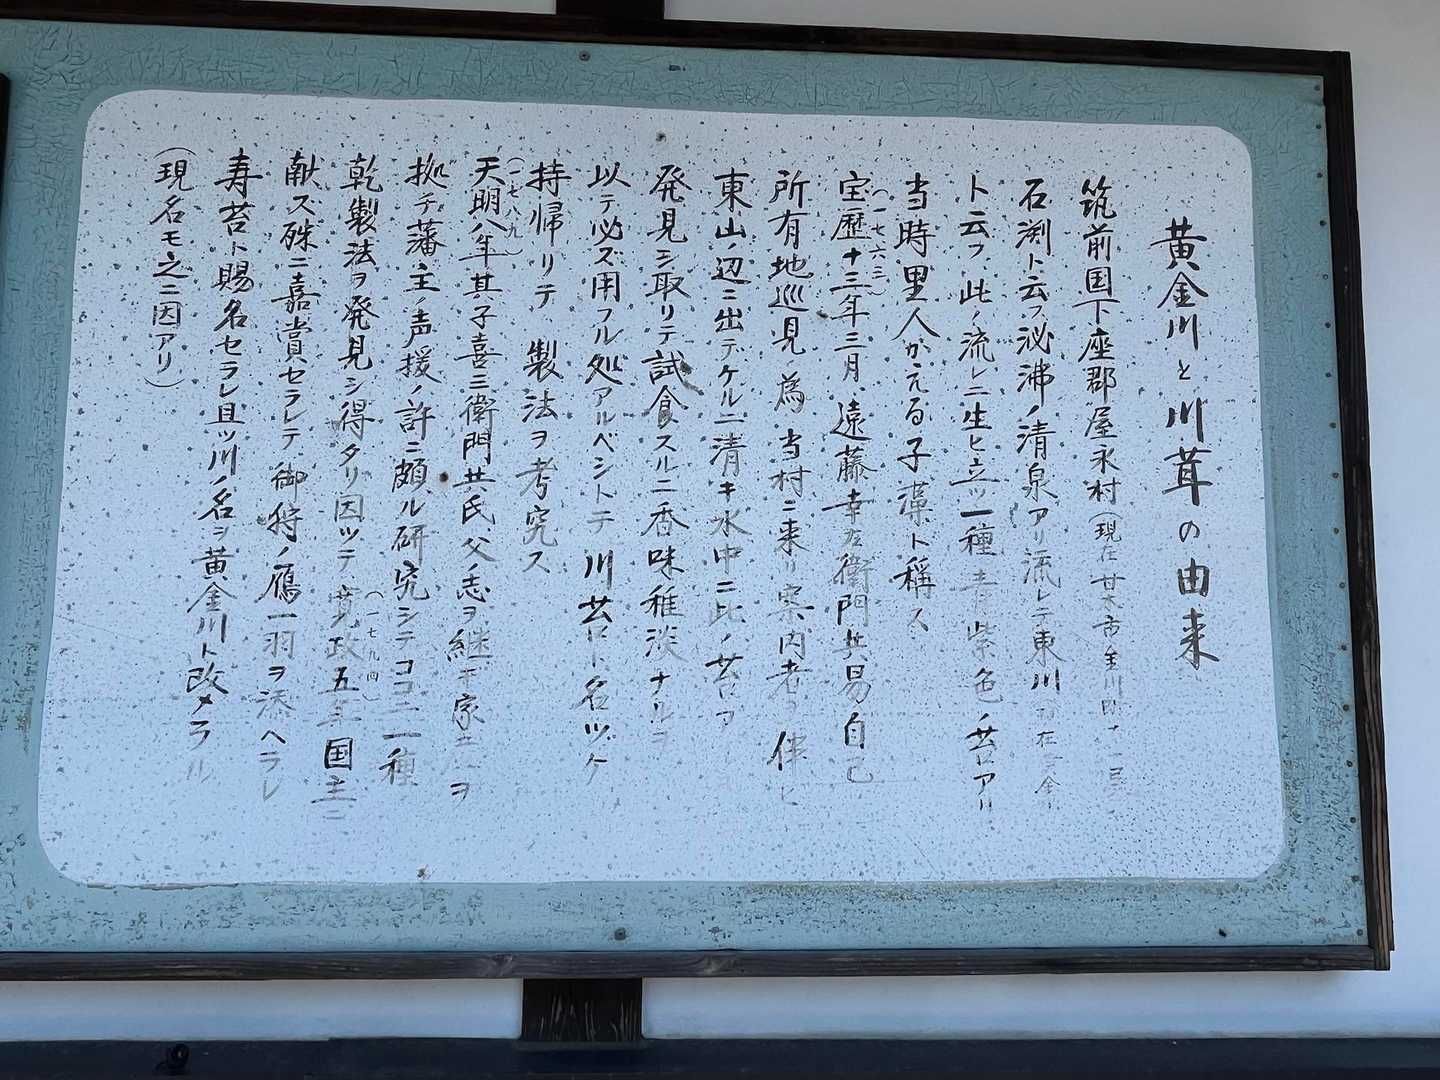 黄金川と川茸の由来
筑前国下座郡屋永村(現在甘木市金川町
石渕ト云フ泌沸ノ清泉アリ流レテ東川
ト云フ此ノ流レニ生ヒ立ツ一種青紫色ノ苔アリ
当時里人かえる子藻ト稱ス
(一七六三)
宝歴十三年三月遠藤幸左衛門共易自己
所有地巡見為当村ニ来リ案内者ヲ伴ヒ
東山ノ辺ニ出テケルニ清キ水中ニ此ノ苔ヲ
発見シ取リテ試食スルニ香味稚淡ナルヲ
以テ必ズ用フル処アルベシトテ川苔ト名ヅケ
持帰リテ製法ヲ考究ス
(一七八九)
天明八年其子喜三衛門共氏父ノ志ヲ継キ家
ヲ
拠チ藩主ノ声援ノ許ニ頗ル研究シテココニ一種
乾製法ヲ発見シ得タリ因ツテ
(一七九四)
寛政五年国主ニ
献ズ殊ニ嘉賞セラレテ御狩ノ鴈一羽ヲ添ヘラレ
寿苔ト賜名セラレ且ツ川ノ名ヲ黄金川ト改メラル
(現名モ之ニ因アリ)